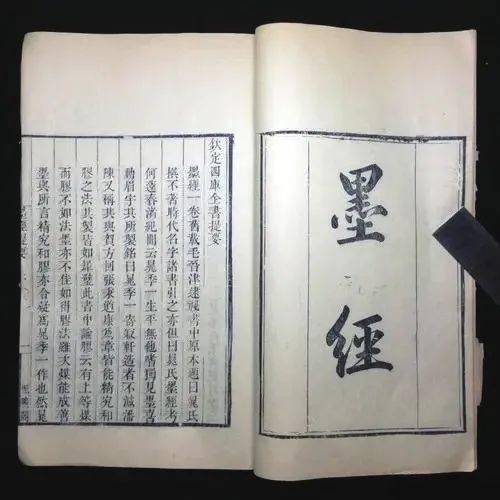 墨
經
欽定四庫全書提要
墨經一卷舊載毛晉津逮祕書中原本題曰晁氏
撰不著時代名字諸書引之亦但曰晁氏墨經考
何薳春渚紀聞云晁季一生平無他嗜獨見墨喜
動眉宇其所製銘曰晁季一寄寂軒造者不減潘
陳又稱其與賀方回張秉道康爲章皆能精究和
膠之法其製皆如犀璧此書中論膠云有上等煤
而膠不如法墨亦不佳如得膠法雖次煤能成善
墨與所言精究和膠亦合疑爲晁季一作也然晁